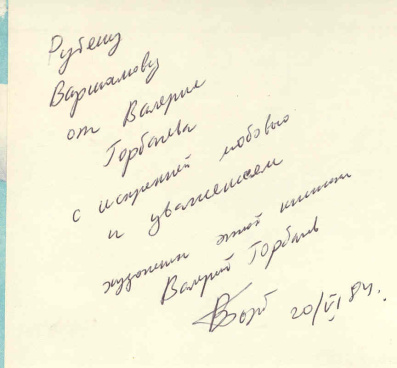 Рубену
Варшамову
от Валерия
Горбачева
с искренней любовью
и уважением
художник этой книжки
Валерий Горбачев
20/VI 84.